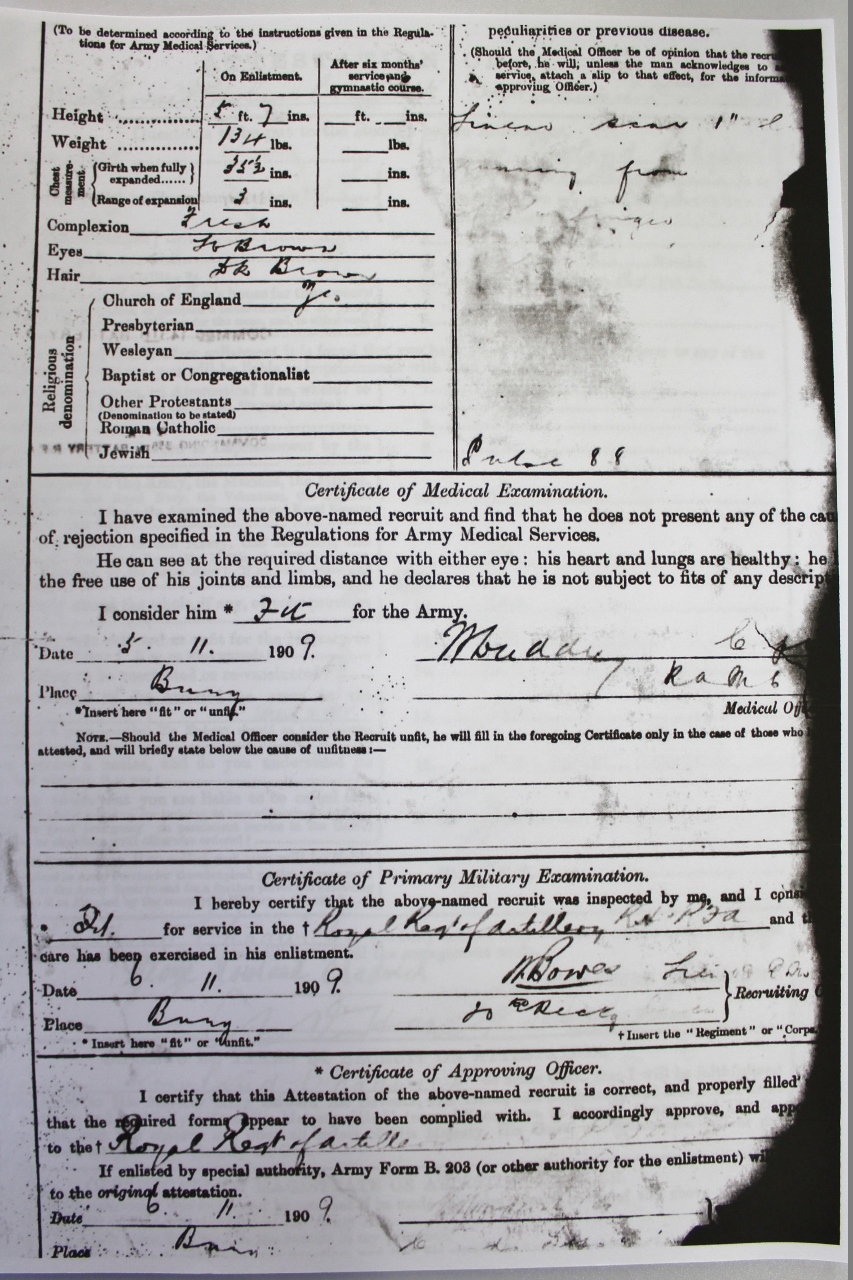 (To be determined according to the instructions given in the Regula-
tions for Army Medical Services.)
On Enlistment.
After six months'
service and
gymnastic course.
Height 5 ft. 7 ins. ft. ins.
Weight 134 lbs. lbs.
Chest measure-ment.
Girth when fully expanded...... 35½ ins. ins.
Range of expansion 3 ins. ins.
Complexion Fresh
Eyes Brown
Hair Dk Brown
Religious denomination
Church of England
Presbyterian
Wesleyan
Baptist or Congregationalist
Other Protestants
(Denomination to be stated)
Roman Catholic
Jewish
peculiarities or previous disease.
(Should the Medical Officer be of opinion that the recru
before, he will, unless the man acknowledges to a
service, attach a slip to that effect, for the inform
approving Officer.)
Linear scar 1"
from
finger
Pulse 88
Certificate of Medical Examination.
I have examined the above-named recruit and find that he does not present any of the cau
of rejection specified in the Regulations for Army Medical Services.
He can see at the required distance with either eye: his heart and lungs are healthy: he
the free use of his joints and limbs, and he declares that he is not subject to fits of any descript
I consider him * Fit for the Army.
Date 5. 11. 1909.
Place Bury
R A M C
*Insert here "fit" or "unfit."
Medical Off
NOTE.—Should the Medical Officer consider the Recruit unfit, he will fill in the foregoing Certificate only in the case of those who
attested, and will briefly state below the cause of unfitness:—
Certificate of Primary Military Examination.
I hereby certify that the above-named recruit was inspected by me, and I consi
* Fit. for service in the † Royal Regt of Artillery RH & RFA and th
care has been exercised in his enlistment.
Date 6 11. 1909.
Place Bury
Recruiting O
* Insert here "fit" or "unfit."
† Insert the "Regiment" or "Corps
* Certificate of Approving Officer.
I certify that this Attestation of the above-named recruit is correct, and properly filled
that the required forms appear to have been complied with. I accordingly approve, and app
to the † Royal Regt of Artille
If enlisted by special authority, Army Form B. 203 (or other authority for the enlistment) wi
to the original attestation.
Date 6 11. 1909.
Place Bury